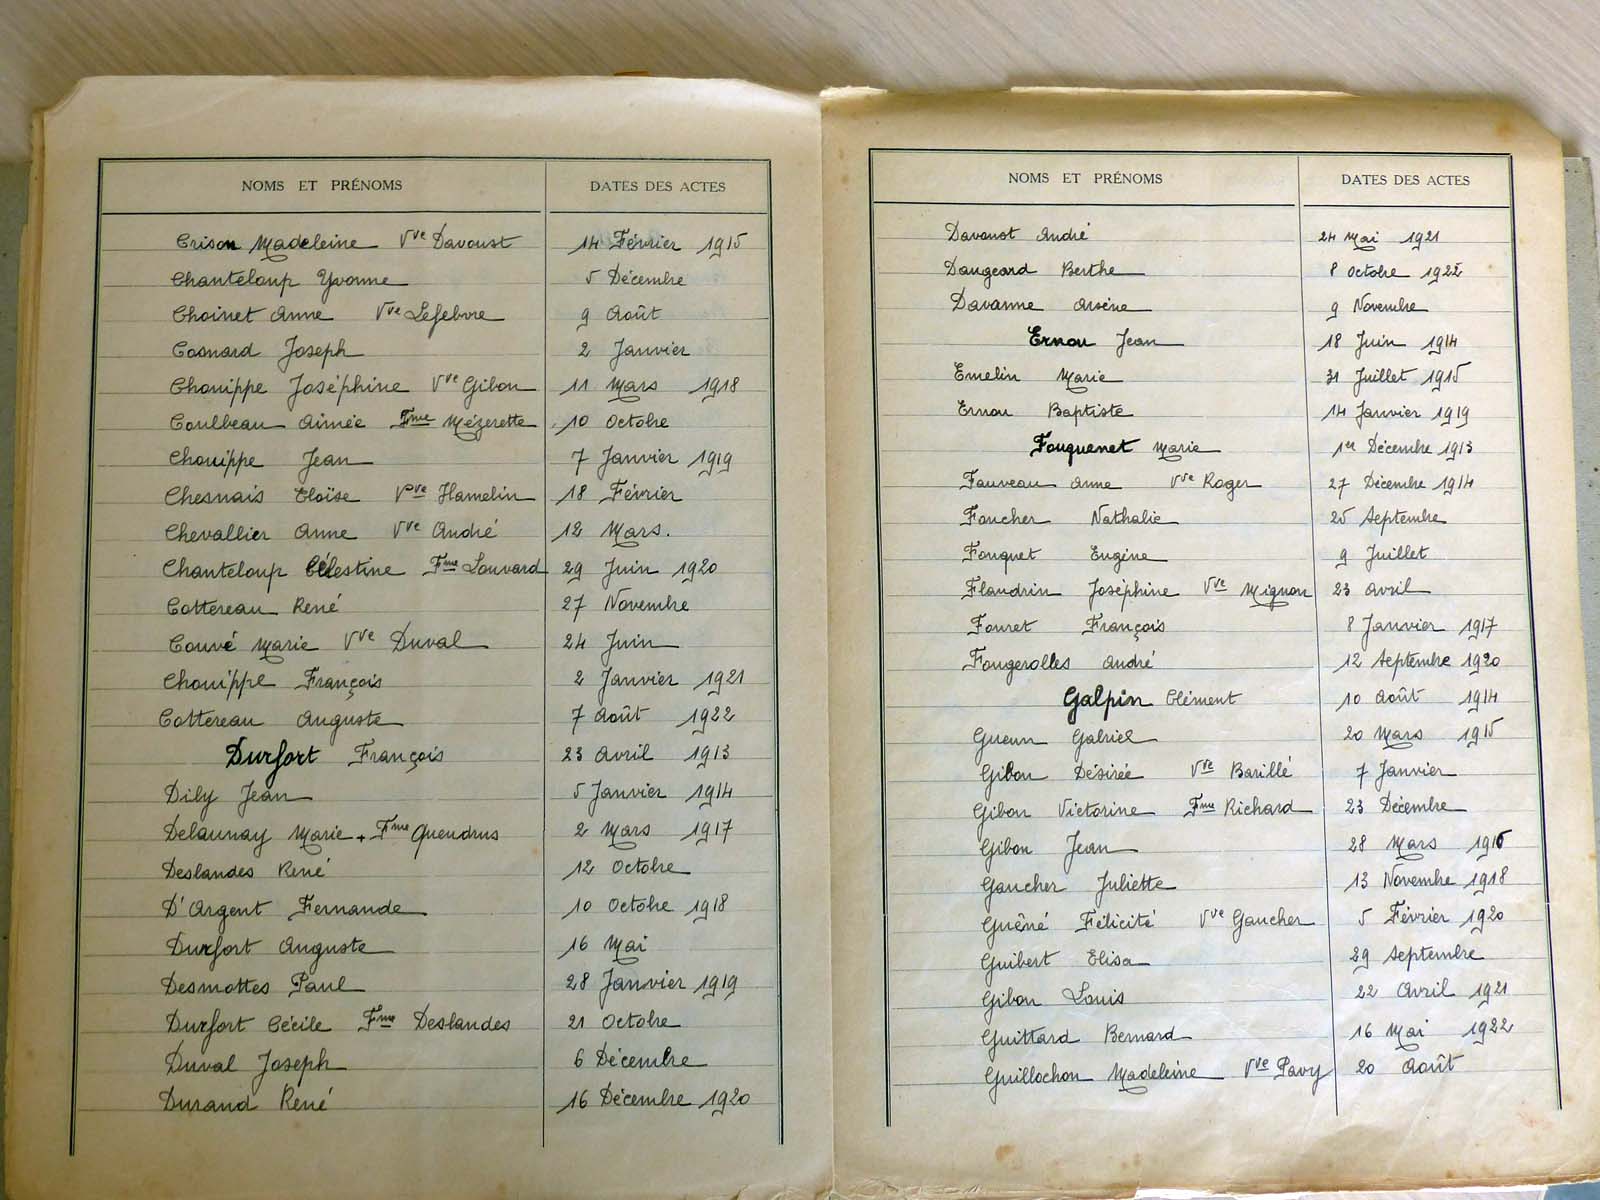 NOMS ET PRÉNOMS DATES DES ACTES
Crison Madeleine Vve Davoust 14 Février 1915
Chanteloup Yvonne 5 Décembre
Choinet Anne Vve Lefebvre 9 Août
Cosnard Joseph 2 Janvier
Chouippe Joséphine Vve Gibon 11 Mars 1918
Coulbeau Aimée Fme Mézerette 10 Octobre
Chouippe Jean 7 Janvier 1919
Chesnais Eloïse Vve Hamelin 18 Février
Chevallier Anne Vve André 12 Mars.
Chanteloup Célestine Fme Louvard 29 Juin 1920
Cottereau René 27 Novembre
Couvé Marie Vve Duval 24 Juin
Chouippe François 2 Janvier 1921
Cottereau Auguste 7 Août 1922
Durfort François 23 Avril 1913
Dily Jean 5 Janvier 1914
Delaunay Marie + Fme Quendrus 2 Mars 1917
Deslandes René 12 Octobre
D'Argent Fernande 10 Octobre 1918
Durfort Auguste 16 Mai
Desmottes Paul 28 Janvier 1919
Durfort Cécile Fme Deslandes 21 Octobre
Duval Joseph 6 Décembre
Durand René 16 Décembre 1920
NOMS ET PRÉNOMS DATES DES ACTES
Davoust André 24 Mai 1921
Daugeard Berthe 8 Octobre 1922
Davanne Arsène 9 Novembre
Ernou Jean 18 Juin 1914
Emelin Marie 31 Juillet 1915
Ernou Baptiste 14 Janvier 1919
Fouquenet Marie 1er Décembre 1913
Fauveau Anne Vve Roger 27 Décembre 1914
Foucher Nathalie 25 Septembre
Fouquet Eugène 9 Juillet
Flandrin Joséphine Vve Mignon 23 Avril
Fouret François 8 Janvier 1917
Fougerolles André 12 Septembre 1920
Galpin Clément 10 Août 1914
Gueun Gabriel 20 Mars 1915
Gibon Désirée Vve Barillé 7 Janvier
Gibon Victorine Fme Richard 23 Décembre
Gibon Jean 28 Mars
Gaucher Juliette 13 Novembre 1918
Guêné Félicité Vve Gaucher 5 Février 1920
Guibert Elisa 29 Septembre
Gibon Louis 22 Avril 1921
Guittard Bernard 16 Mai 1922
Guillochon Madeleine Vve Pavy 20 Août